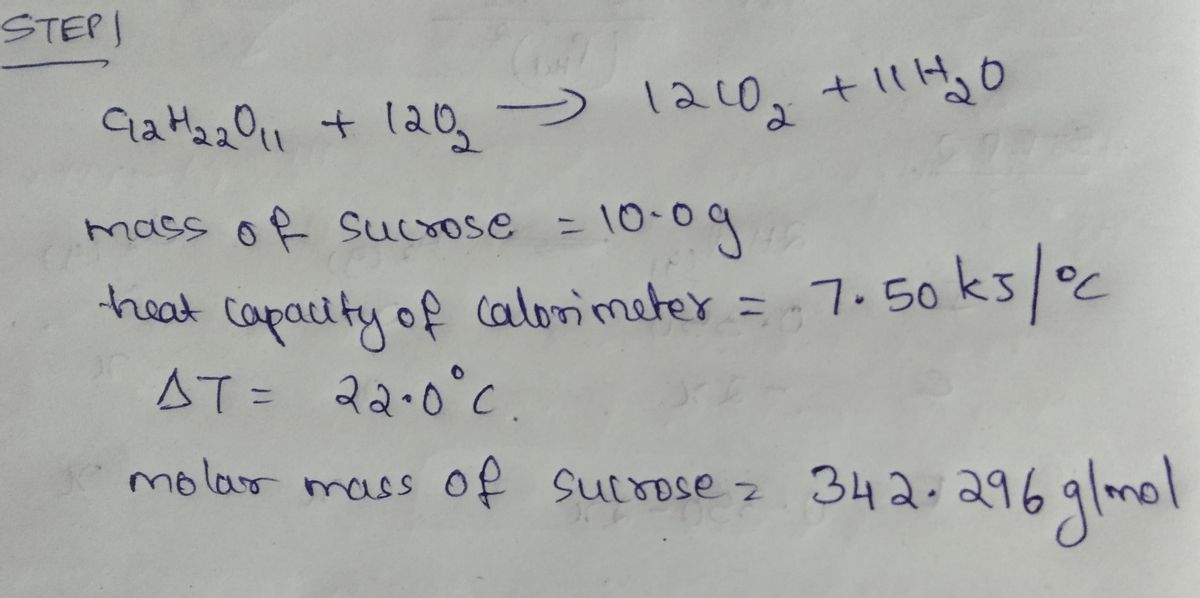 STEP 1
C12H22O11 + 12O2 → 12CO2 + 11H2O
mass of sucrose = 10.0 g
heat capacity of calorimeter = 7.50 kJ/°C
ΔT = 22.0°C.
molar mass of sucrose = 342.296 g/mol